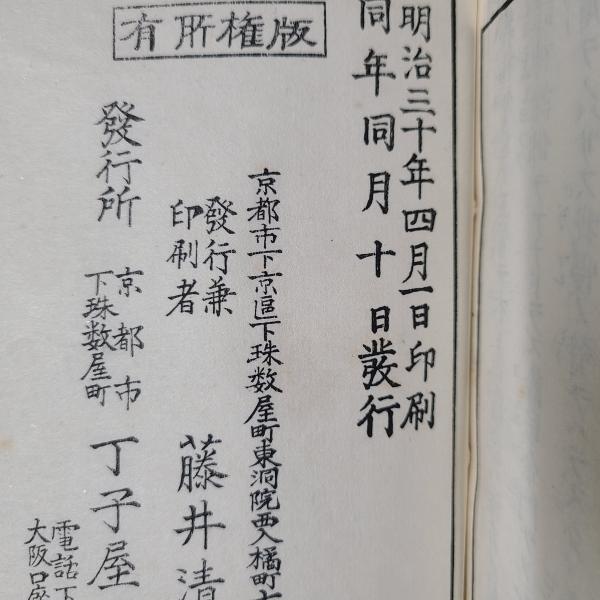 明治三十年四月一日印刷
同年同月十日發行
京都市下京區下珠数屋町東洞院西入橘町
發行兼
印刷者
藤井清
版権所有
發行所
京都市
下珠数屋町
丁子屋
電話下
大阪口座